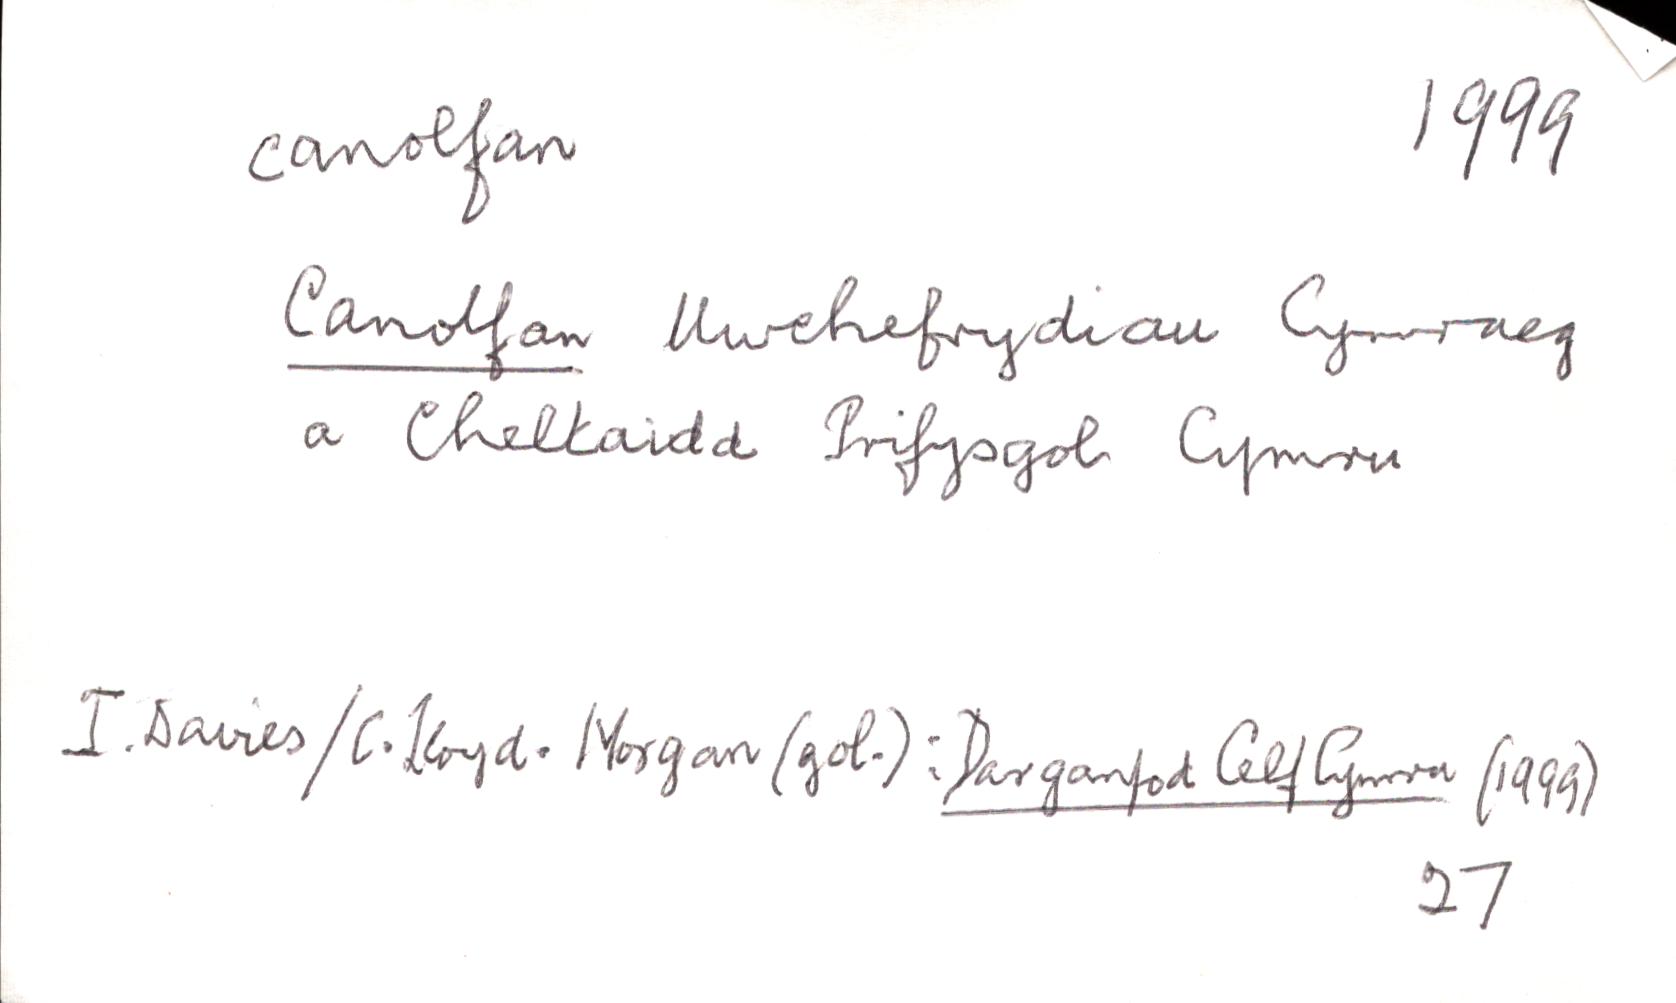 canolfan 1999
Canolfan Uwchefrydiau Cymraeg
a Cheltaidd Prifysgol Cymru
I. Davies/C. Lloyd-Morgan (gol.): Darganfod Celf Cymru (1999)
27